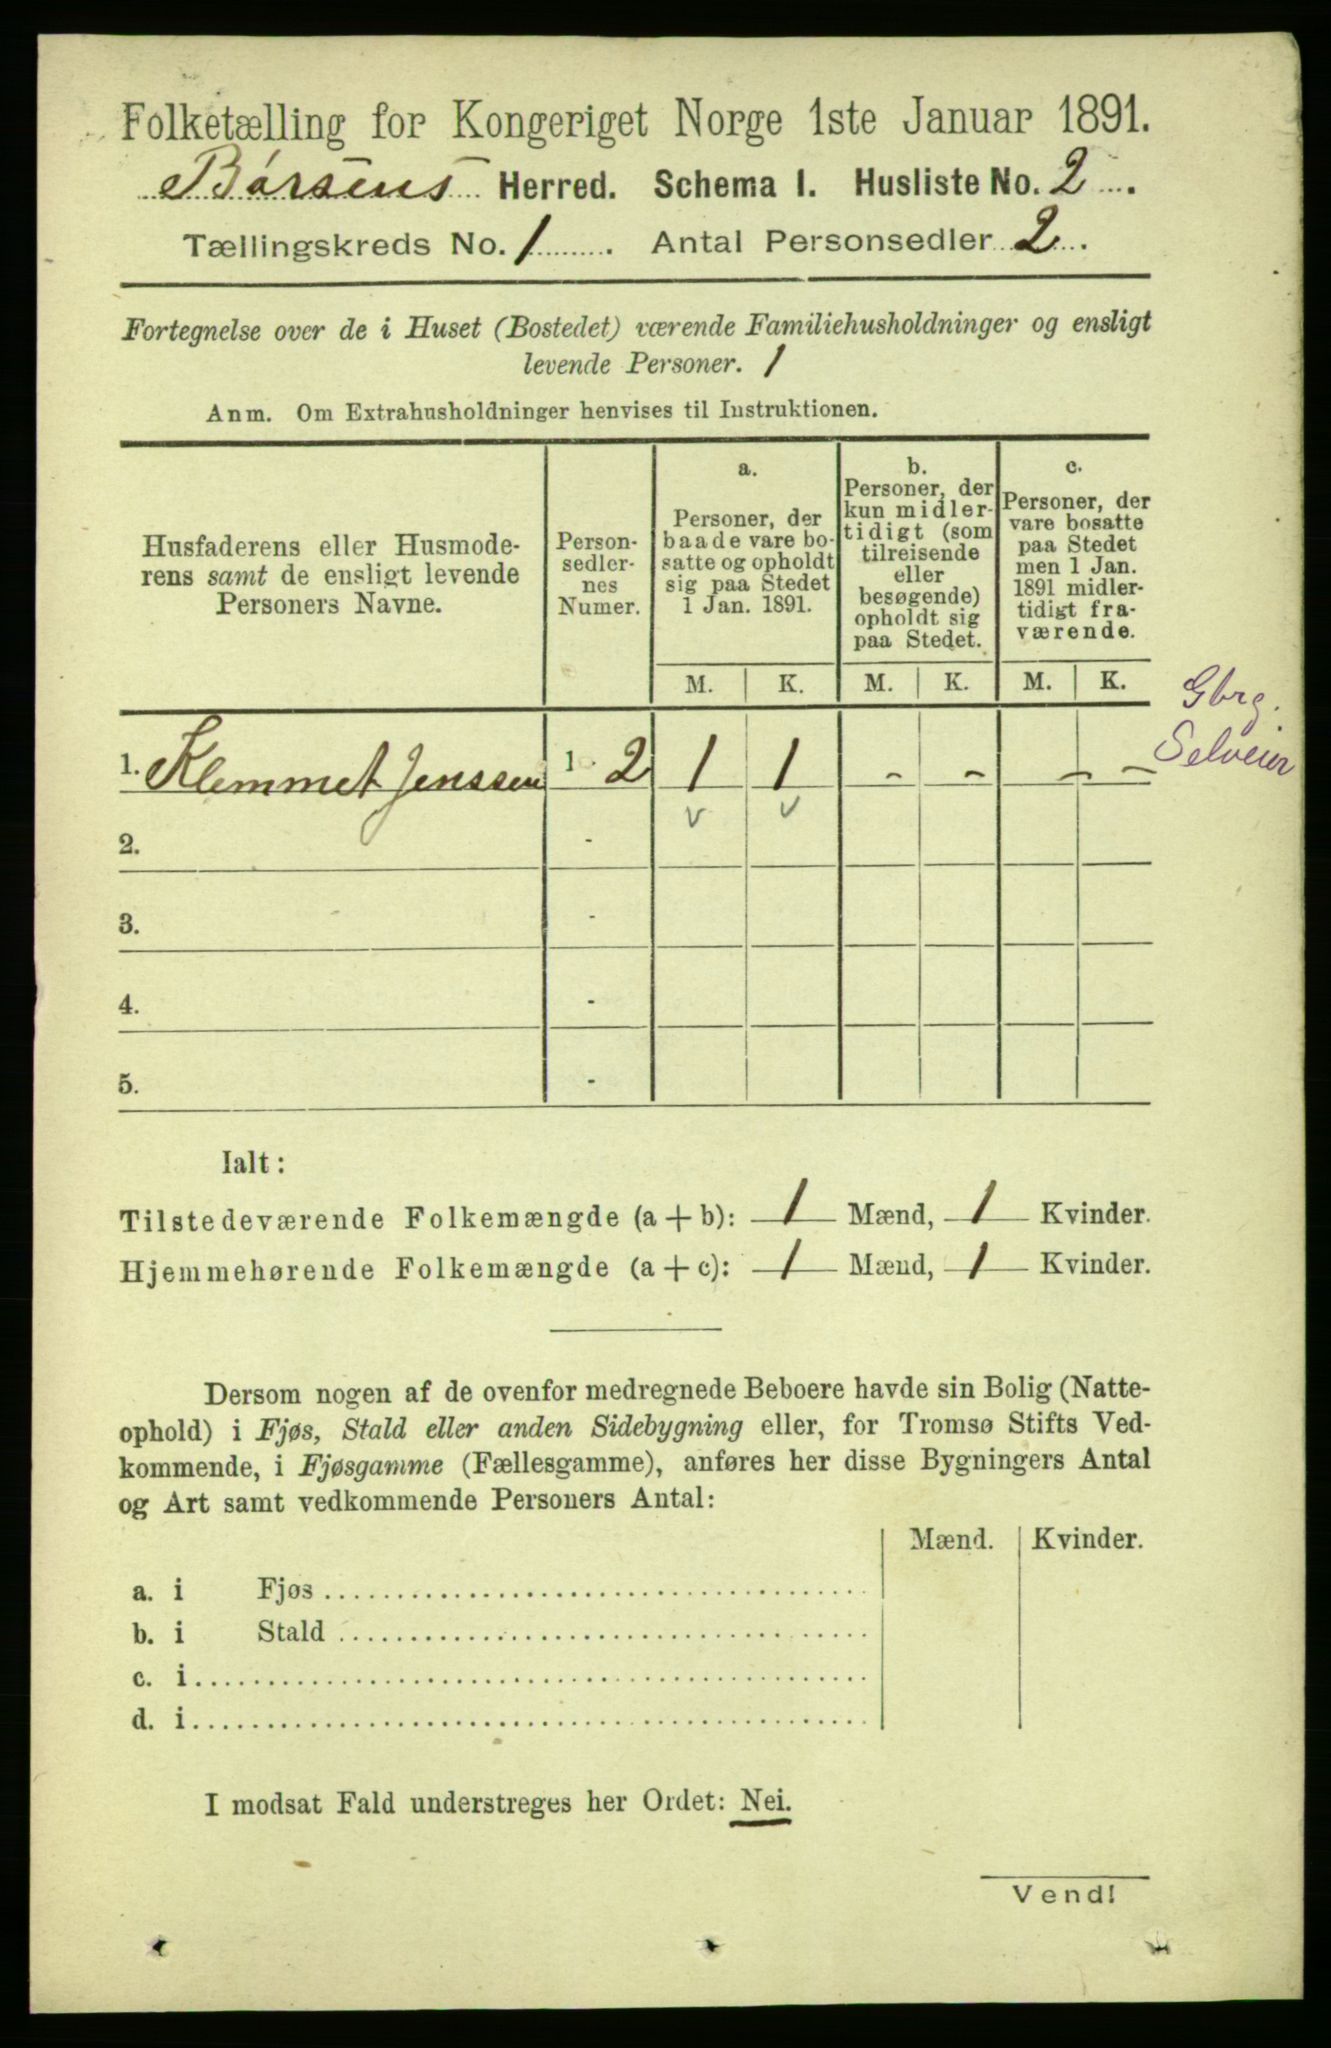 Folketælling for Kongeriget Norge 1ste Januar 1891.
Børsens Herred. Schema I. Husliste No. 2
Tællingskreds No. 1. Antal Personsedler 2.
Fortegnelse over de i Huset (Bostedet) værende Familiehusholdninger og ensligt
levende Personer. 1
Anm. Om Extrahusholdninger henvises til Instruktionen.
Husfaderens eller Husmode-
rens samt de ensligt levende
Personers Navne.
Person-
sedler-
nes
Numer.
a.
Personer, der
baade vare bo-
satte og opholdt
sig paa Stedet
1 Jan. 1891.
b.
Personer, der
kun midler-
tidigt (som
tilreisende
eller
besøgende)
opholdt sig
paa Stedet.
c.
Personer, der
vare bosatte
paa Stedet
men 1 Jan.
1891 midler-
tidigt fra-
værende.
M. K. M. K. M. K.
Gbrg.
Selveier
1. Klemmet Jenssen 1 - 2 1 1 - - - -
v v
2. -
3. -
4. -
5. -
Ialt:
Tilstedeværende Folkemængde (a + b): 1 Mænd, 1 Kvinder.
Hjemmehørende Folkemængde (a + c): 1 Mænd, 1 Kvinder.
Dersom nogen af de ovenfor medregnede Beboere havde sin Bolig (Natte-
ophold) i Fjøs, Stald eller anden Sidebygning eller, for Tromsø Stifts Ved-
kommende, i Fjøsgamme (Fællesgamme), anføres her disse Bygningers Antal
og Art samt vedkommende Personers Antal:
Mænd. Kvinder.
a. i Fjøs
b. i Stald
c. i
d. i
I modsat Fald understreges her Ordet: Nei.
Vend!